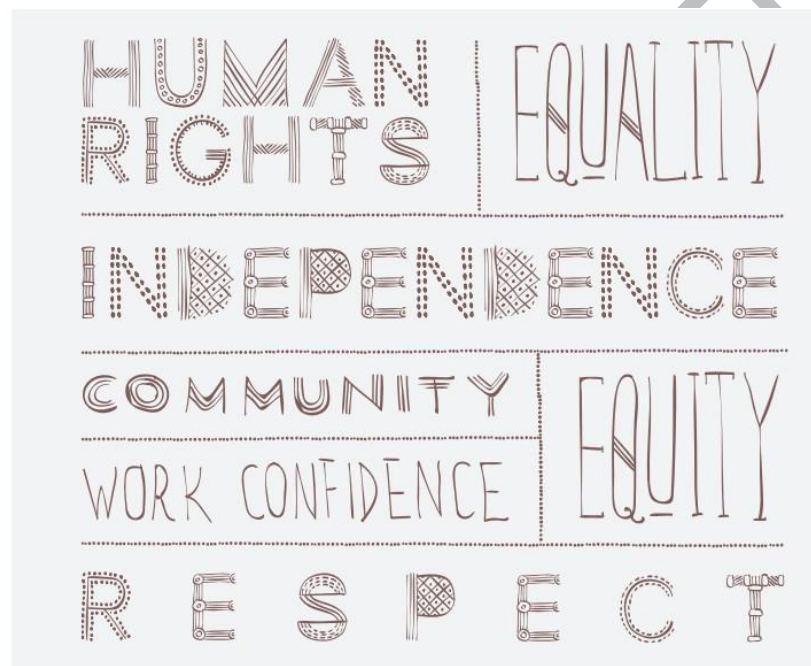 HUMAN
RIGHTS
EQUALITY
INDEPENDENCE
COMMUNITY
WORK CONFIDENCE
EQUITY
RESPECT